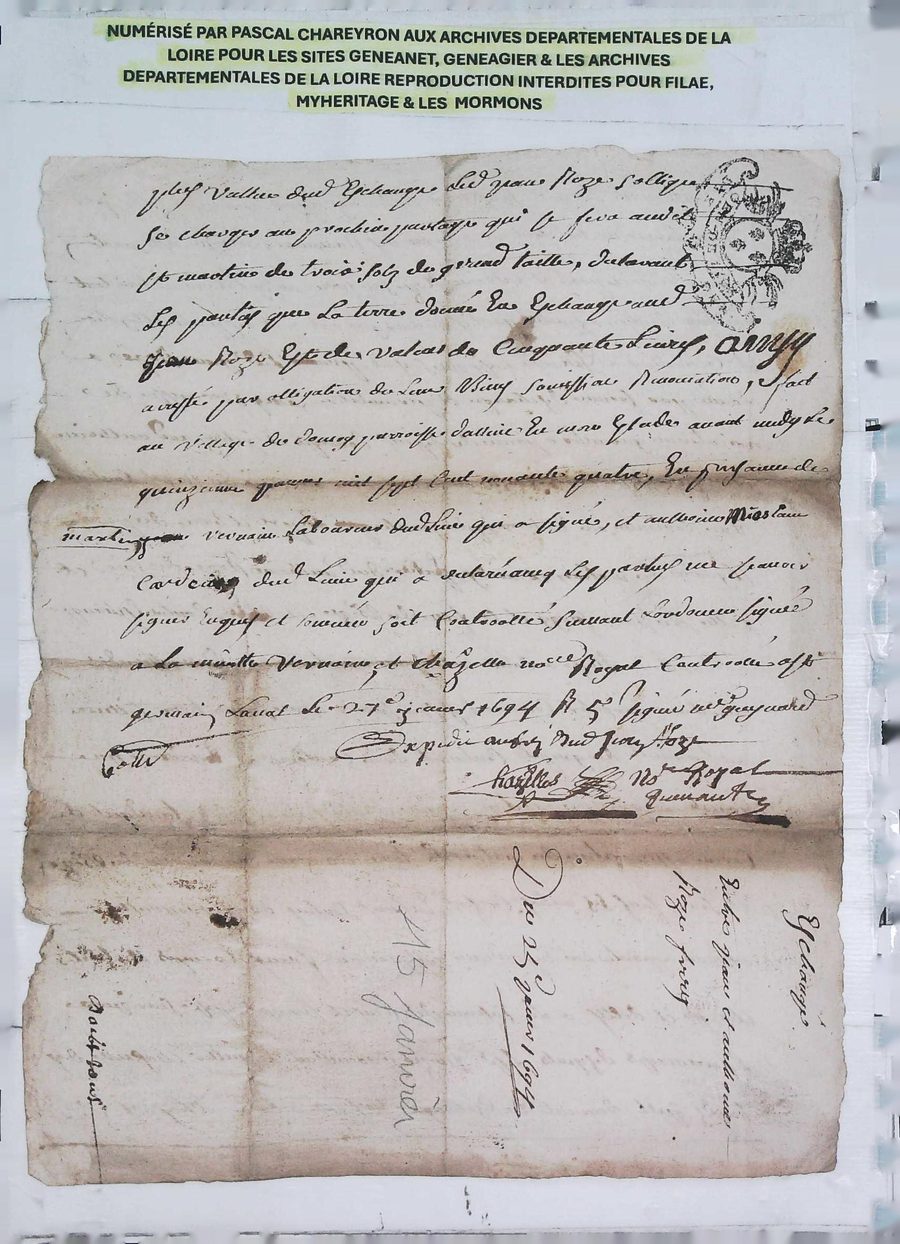 NUMÉRISÉ PAR PASCAL CHAREYRON AUX ARCHIVES DEPARTEMENTALES DE LA
LOIRE POUR LES SITES GENEANET, GENEAGIER & LES ARCHIVES
DEPARTEMENTALES DE LA LOIRE REPRODUCTION INTERDITES POUR FILAE,
MYHERITAGE & LES MORMONS
plus vallue dud Eschange led jean Roze soblige
se charger au prochein partage qui se fera audit
st martin de trois solz de grand taille, declarant
Les parties que La terre donné En Eschange aud
jean Roze Est de valeur de Cinquante Livres, ainsy
par obligation de Leur Biens soumission Renonciation, fait
au village de parroisse En mon Estude avant midy Le
quinzieme janvier mil sept Cent nonante quatre, En presance de
martin vernain Laboureur dud Lieu qui a signé, et anthoine
dud Lieu qui a declaré avecq Les parties ne scavoir
signer Enquis et soit Controollé suivant Lordonance signée
a La minutte vernain et chazelles no.re Royal Controolé a st
germain Laval Le 27e janvier 1694 R 5s signé
Expedié aud jean Roze
Chazelles No.re Royal
Eschange
Entre jean et anthoine
Roze freres
Du 25 janvier 1694
15 Janvier